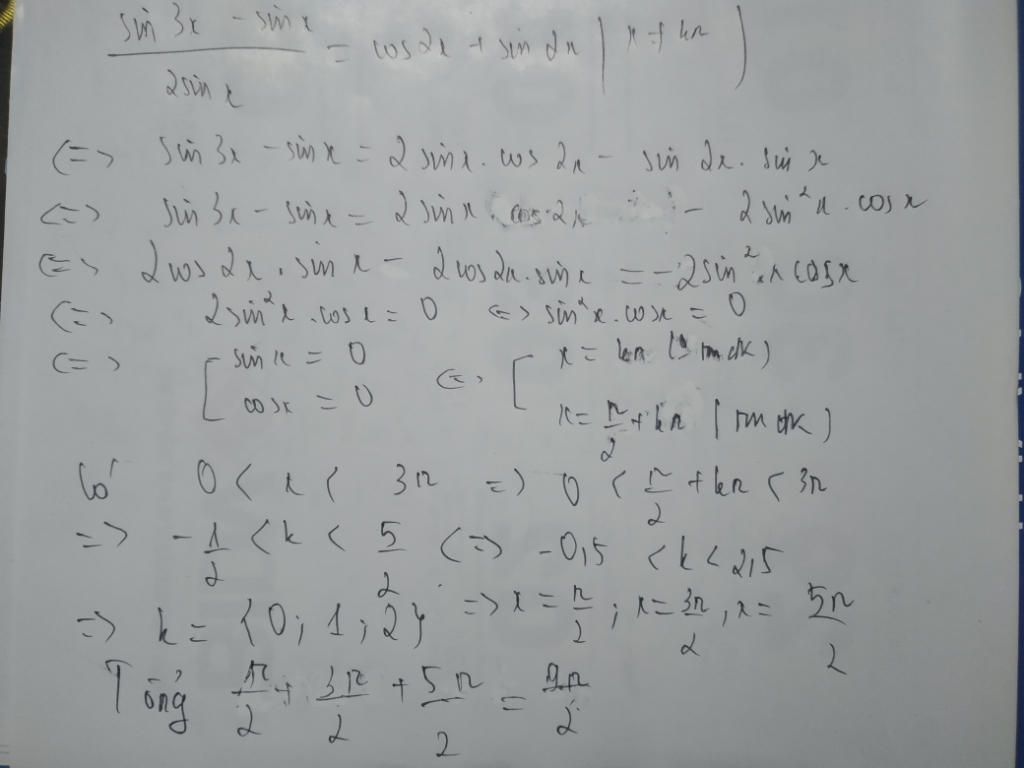 sin 3x - sin x / 2 sin x = cos 2x + sin 2x ( x ≠ kπ )
<=> sin 3x - sin x = 2 sin x . cos 2x - sin 2x . sin x
<=> sin 3x - sin x = 2 sin x . cos 2x - 2 sin² x . cos x
<=> 2 cos 2x . sin x - 2 cos 2x . sin x = - 2 sin² . x cos x
<=> 2 sin² x . cos x = 0 <=> sin² x . cos x = 0
<=> [ sin x = 0 <=> [ x = kπ ( tmđk )
cos x = 0 x = π/2 + kπ ( tmđk )
Có 0 < x < 3π => 0 < π/2 + kπ < 3π
=> - 1/2 < k < 5/2 <=> - 0,5 < k < 2,5
=> k = { 0 ; 1 ; 2 } => x = π/2 ; x = 3π/2 , x = 5π/2
Tổng π/2 + 3π/2 + 5π/2 = 9π/2